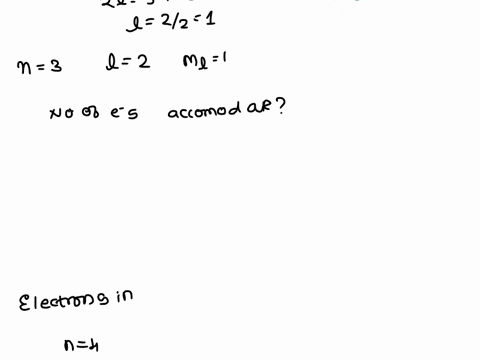 l = 2/2 = 1
n = 3 l = 2 ml = 1
No of e-s accomodate?
Electrons in
n=4